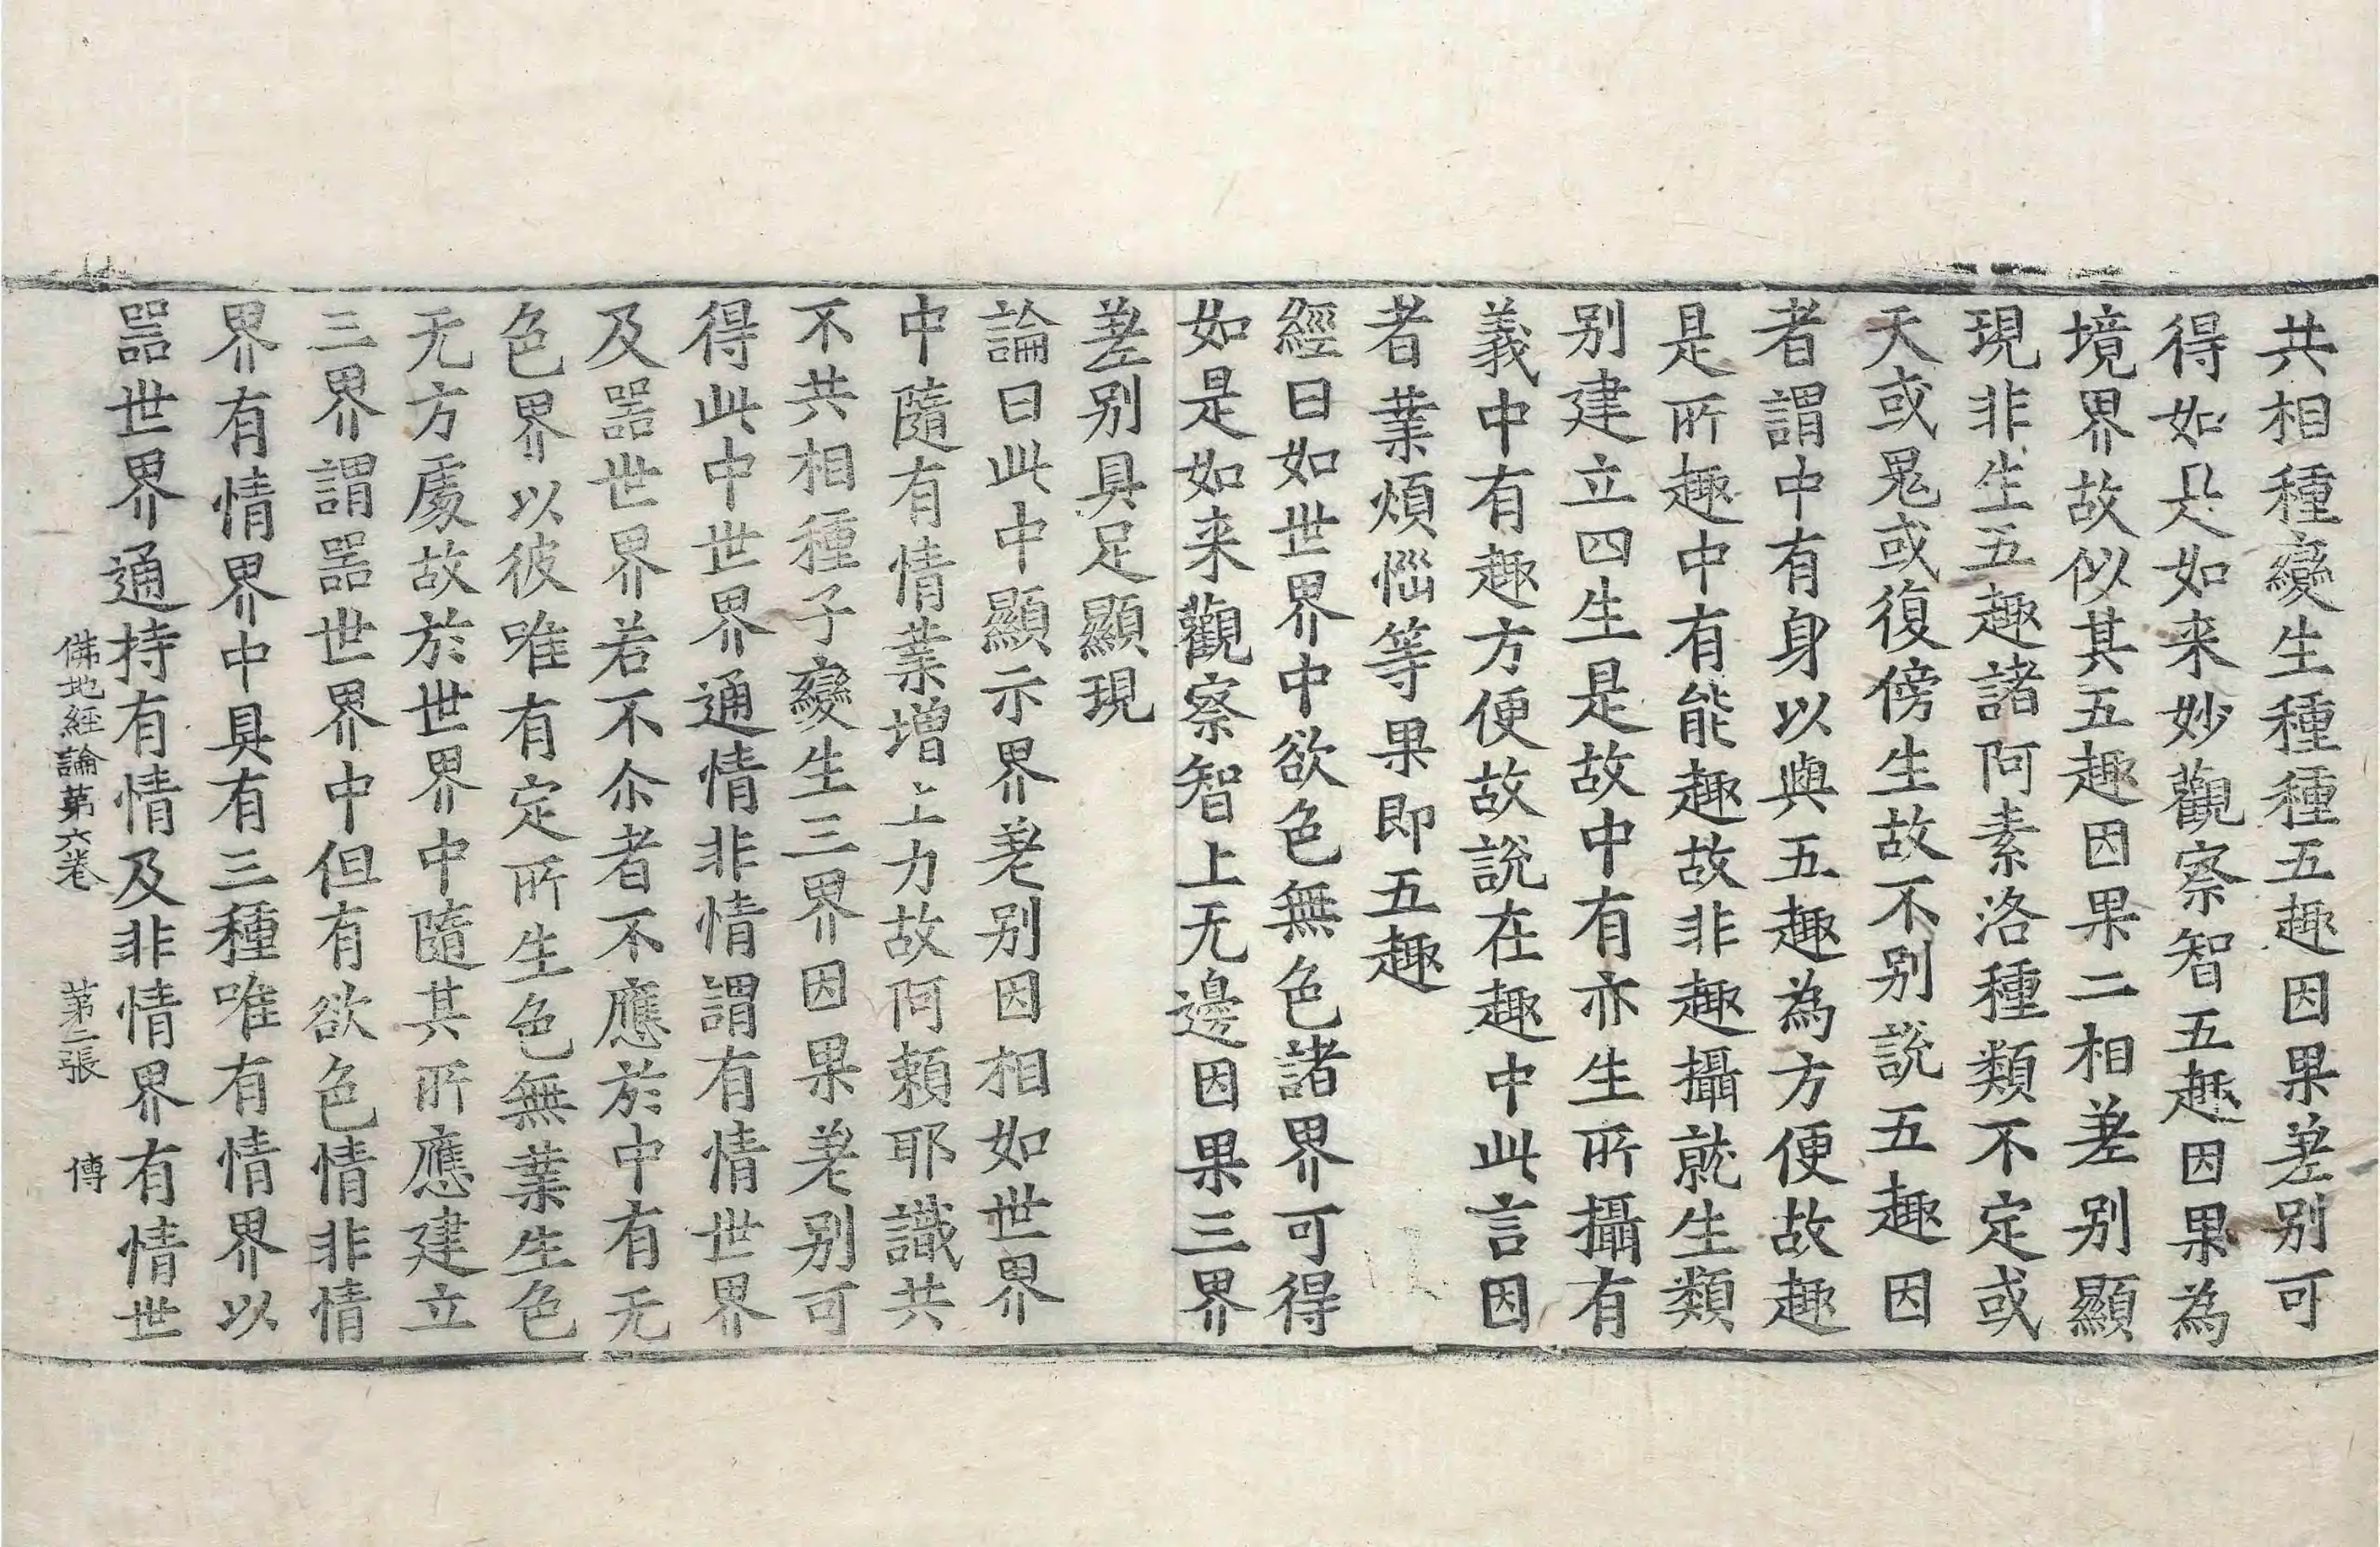 共相種變生種種五趣因果差别可
得如是如来妙觀察智五趣因果為
境界故似其五趣因果二相差别顯
現非生五趣諸阿素洛種類不定或
天或鬼或復傍生故不别説五趣因
者謂中有身以與五趣為方便故趣
是所趣中有能趣故非趣攝就生類
别建立四生是故中有亦生所攝有
義中有趣方便故説在趣中此言因
者業煩惱等果即五趣
經曰如世界中欲色無色諸界可得
如是如来觀察智上无邊因果三界
差别具足顯現
論曰此中顯示界差别因相如世界
中隨有情業增上力故阿頼耶識共
不共相種子變生三界因果差别可
得此中世界通情非情謂有情世界
及噐世界若不尒者不應於中有无
色界以彼唯有定所生色無業生色
无方處故於世界中隨其所應建立
三界謂噐世界中但有欲色情非情
界有情界中具有三種唯有情界以
噐世界通持有情及非情界有情世
佛地經論第六卷 第二張 傅